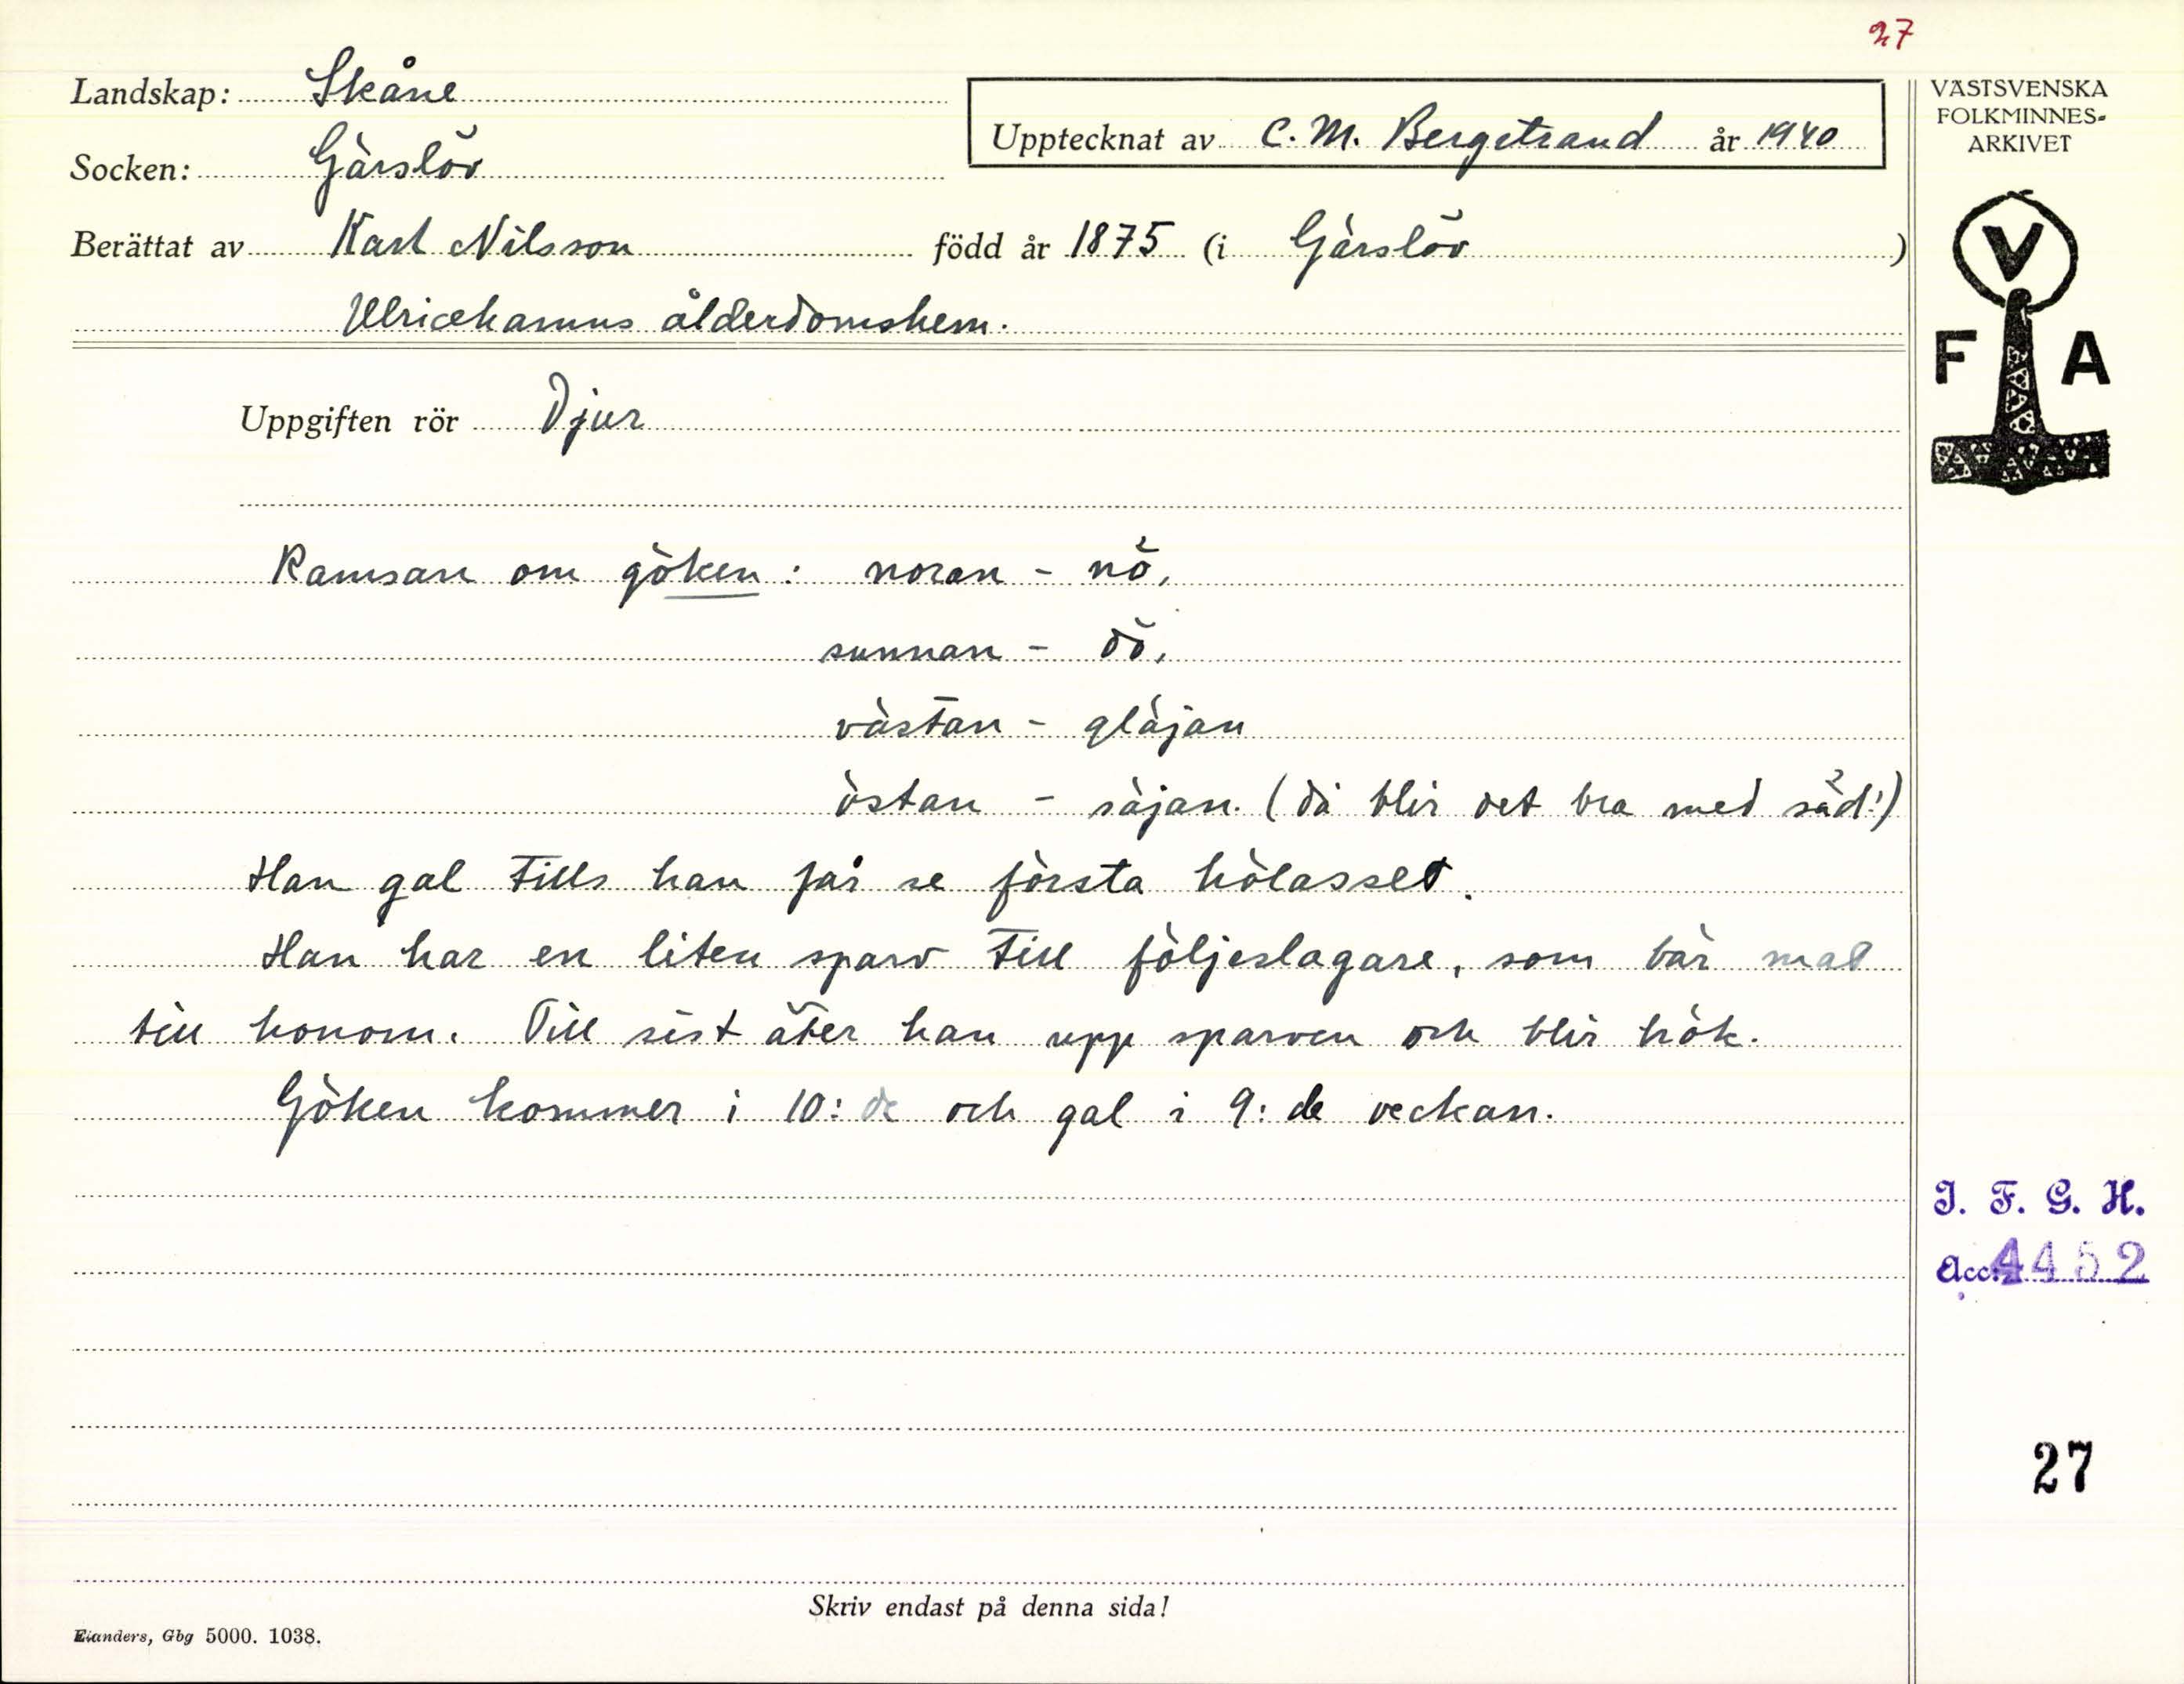 27
Landskap: Skåne
Socken: Gärslöv
Upptecknat av C. M. Bergstrand år 1940
Berättat av Karl Nilsson född år 1875 (i Gärslöv)
Ulricehamns ålderdomshem.
VÄSTSVENSKA
FOLKMINNES-
ARKIVET
V
F A
Uppgiften rör Djur
Ramsan om göken: noran - nö,
sunnan - dö,
västan - gläjan
östan - säjan. (då blir det bra med säd!)
Han gal tills han får se första hölasset.
Han har en liten sparv till följeslagare, som bär mat
till honom. Till sist äter han upp sparven och blir hök.
Göken kommer i 10:de och gal i 9:de veckan.
I. F. G. H.
Acc. 4452
27
Skriv endast på denna sida!
Elanders, Gbg 5000. 1038.